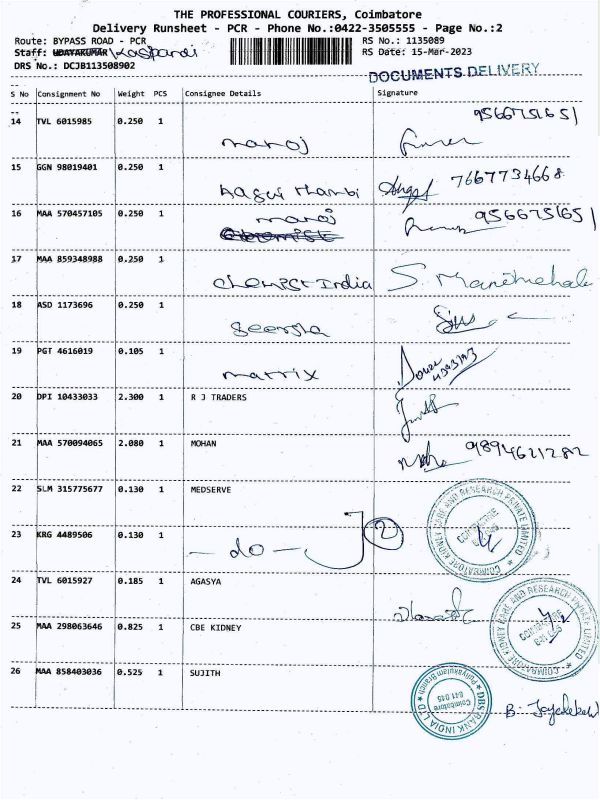 THE PROFESSIONAL COURIERS, Coimbatore
Delivery Runsheet - PCR - Phone No.:0422-3505555 - Page No.:2
Route: BYPASS ROAD - PCR RS No.: 1135089
Staff: UDAYAKUMAR RS Date: 15-Mar-2023
DRS No.: DCJB113508902
DOCUMENTS DELIVERY
S No Consignment No Weight PCS Consignee Details Signature
14 TVL 6015985 0.250 1 9566751651
manoj
15 GGN 98019401 0.250 1
thambi 7667734668
16 MAA 570457105 0.250 1 manoj 9566751651
17 MAA 859348988 0.250 1
chemist India S.
18 ASD 1173696 0.250 1
19 PGT 4616019 0.105 1
matrix
20 DPI 10433033 2.300 1 R J TRADERS
21 MAA 570094065 2.080 1 MOHAN
9894621282
22 SLM 315775677 0.130 1 MEDSERVE
COIMBATORE KIDNEY CARE AND RESEARCH PRIVATE LIMITED
COIMBATORE
23 KRG 4489506 0.130 1
- do - 2
24 TVL 6015927 0.185 1 AGASYA
COIMBATORE KIDNEY CARE AND RESEARCH PRIVATE LIMITED
COIMBATORE
25 MAA 298063646 0.825 1 CBE KIDNEY
26 MAA 858403036 0.525 1 SUJITH
DBS BANK INDIA LTD
Coimbatore
641 015
B.